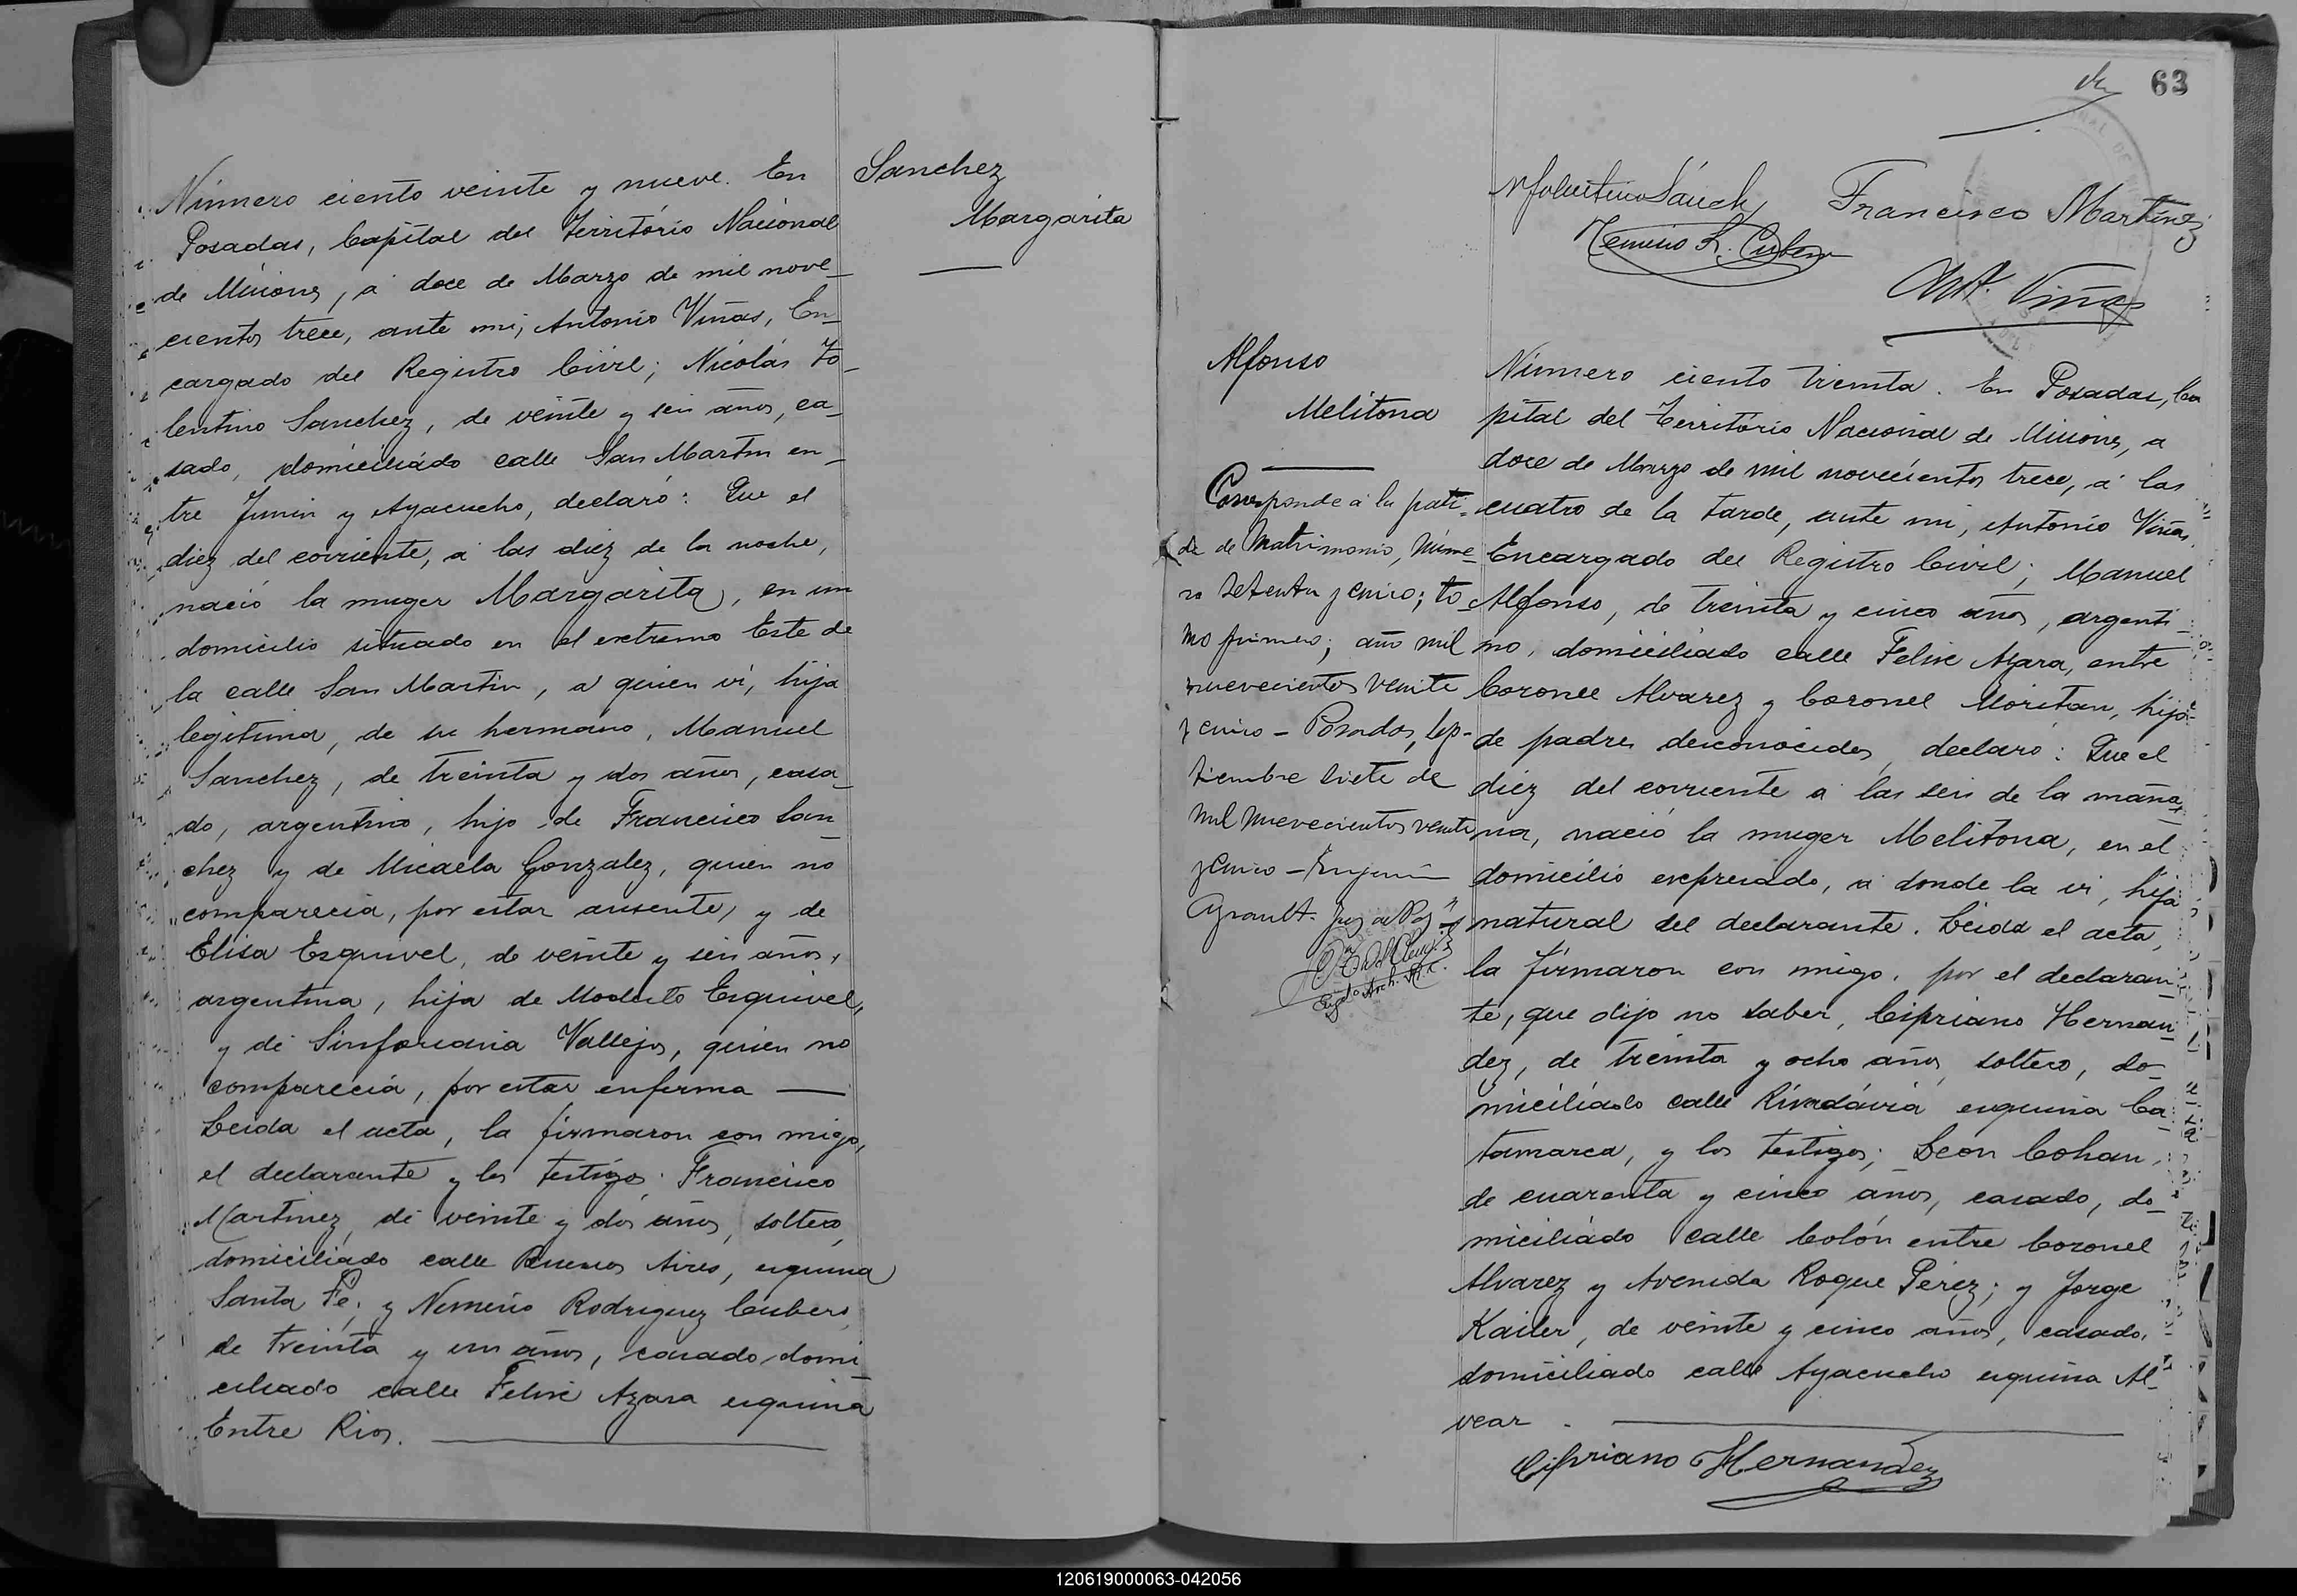 Número ciento veinte y nueve. En
Posadas, Capital del Territorio Nacional
de Misiones, á doce de Marzo de mil nove_
cientos trece, ante mi, Antonio Viñas, En_
cargado del Registro Civil; Nicolás To_
lentino Sanchez, de veinte y seis años, ca_
sado, domiciliado calle San Martin en_
tre Junin y Ayacucho, declaró: Que el
diez del corriente, á las diez de la noche,
nació la muger Margarita, en un
domicilio situado en el extremo Este de
la calle San Martin, á quien vi, hija
legitima, de su hermano, Manuel
Sanchez, de treinta y dos años, casa_
do, argentino, hijo de Francisco San_
chez y de Micaela Gonzalez, quien no
comparecia, por estar ausente, y de
Elisa Esquivel, de veinte y seis años,
argentina, hija de Modesto Esquivel,
y de Sinforiana Vallejos, quien no
comparecia, por estar enferma
Leida el acta, la firmaron con migo,
el declarante y los testigos: Francisco
Martinez, de veinte y dos años, soltero,
domiciliado calle Buenos Aires, esquina
Santa Fé; y Nemesio Rodriguez Cubero,
de treinta y un años, casado, domi_
ciliado calle Felix Azara esquina
Entre Rios.
Sanchez
Margarita
63
Francisco Martinez
Ant. Viñas
Alfonso
Melitona
Corresponde á la parti_
da de Matrimonio, núme_
ro setenta y cinco; to_
mo primero; año mil
nuevecientos veinte
y cinco – Posadas, sep-
tiembre siete de
mil nuevecientos veinte
y cinco –
Juez de Paz
Engdo Arch. R. C.
Número ciento treinta. En Posadas, Ca
pital del Territorio Nacional de Misiones, a
doce de Marzo de mil novecientos trece, á las
cuatro de la tarde, ante mi, Antonio Viñas,
Encargado del Registro Civil; Manuel
Alfonso, de treinta y cinco años, argenti_
no, domiciliado calle Felix Azara, entre
Coronel Alvarez y Coronel Moritan, hijo
de padres desconocidos, declaró: Que el
diez del corriente á las seis de la maña_
na, nació la muger Melitona, en el
domicilio expresado, á donde la vi, hija
natural del declarante. Leida el acta,
la firmaron con migo, por el declaran_
te, que dijo no saber, Cipriano Hernan_
dez, de treinta y ocho años, soltero, do_
miciliado calle Rivadavia esquina Ca_
tamarca, y los testigos; Leon Cohan,
de cuarenta y cinco años, casado, do_
miciliado calle Colón entre Coronel
Alvarez y Avenida Roque Perez; y Jorge
Kailer, de veinte y cinco años, casado,
domiciliado calle Ayacucho esquina Al_
vear.
Cipriano Hernandez
120619000063-042056